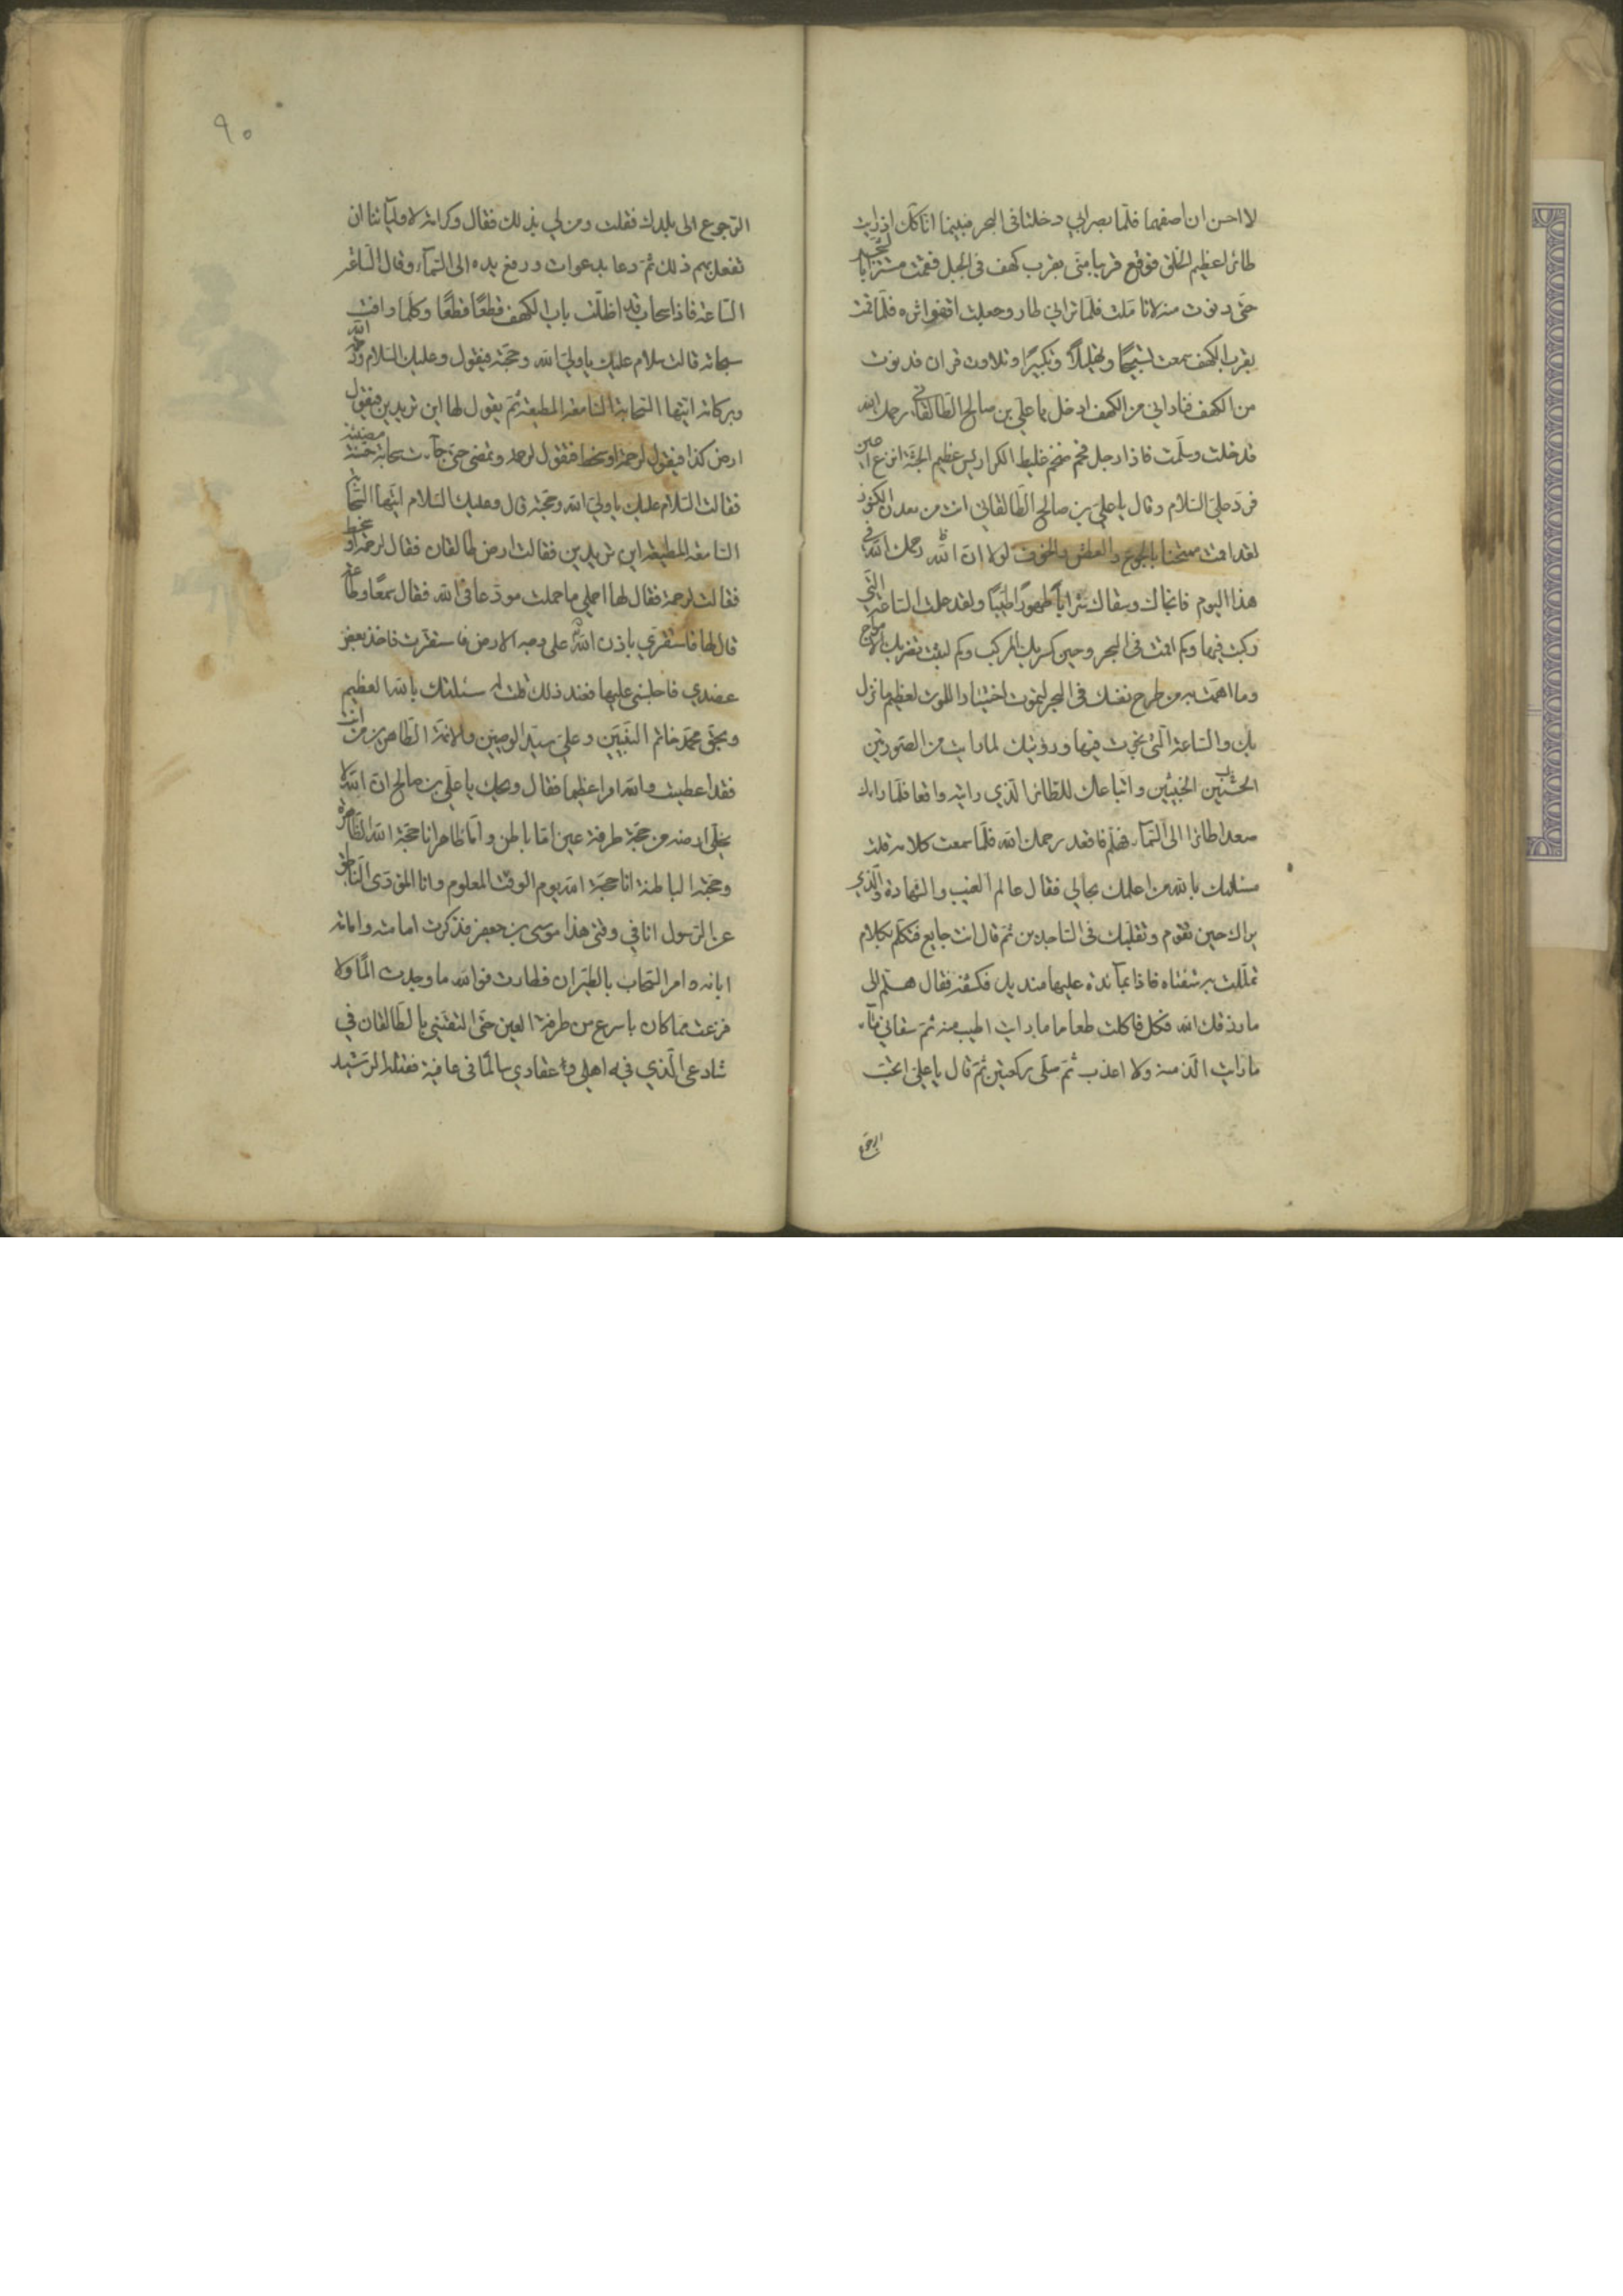 لا احسن ان اصفهما فلما بصرا بي دخلتا في البحر فبينما انا كك اذ رايت
طائرا عظيم الخلق فوقع قريبا مني بقرب كهف في الجبل فقمت مستترا بالشجر
حتى دنوت منه لاتامله فلما راني طار وجعلت اقفو اثره فلما قمت
بقرب الكهف سمعت تسبيحا وتهليلا وتكبيرا وتلاوت قران فدنوت
من الكهف فناداني من الكهف ادخل يا علي بن صالح الطالقاني رحمك الله
فدخلت وسلمت فاذا رجل فخم ضخم غليظ الكراديس عظيم الجثة انزع اعين
فرد علي السلام وقال يا علي بن صالح الطالقاني انت من معدن الكنوز
لقد اقمت ممتحنا بالجوع والعطش والخوف لولا ان الله رحمك الله في
هذا اليوم فانجاك وسقاك شرابا طهورا طيبا ولقد علمت الساعة التي
ركبت فيها وكم اقمت في البحر وحين كسر بك المركب وكم لبثت تضربك الامواج
وما اهممت به من طرح نفسك في البحر ليموت اختيارا للموت لعظيم ما نزل
بك والساعة التي نجوت فيها ورؤيتك لما رايت من الصورتين
الحسنتين واتباعك للطائر الذي رايته واقعا فلما راىك
صعد طائرا الى السماء فهلم فاقعد رحمك الله فلما سمعت كلامه قلت
سئلتك بالله من اعلمك بحالي فقال عالم الغيب والشهادة والذي
يراك حين تقوم وتقلبك في الساجدين ثم قال انت جايع فتكلم بكلام
تململت به شفتاه فاذا بمآئدة عليها منديل فكشفه فقال هلم الى
ما رزقك الله فكل فاكلت طعاما ما رايت اطيب منه ثم سقاني مآء
ما رايت الذ منه ولا اعذب ثم صلى ركعتين ثم قال يا علي اتحب
الرجوع
٩٠
الرجوع الى بلدك فقلت ومن لي بذلك فقال وكرامة لاوليآئنا ان
نفعل بهم ذلك ثم دعا بدعوات ورفع يده الى السمآء وقال الساعة
الساعة فاذا سحاب قد اظلت باب الكهف قطعا قطعا وكلما وافت
سحابة قالت سلام عليك يا ولي الله وحجته فيقول وعليك السلام ورحمة الله
وبركاته ايتها السحابة السامعة المطيعة ثم يقول لها اين تريدين فتقول
ارض كذا فيقول لرحمة او سخط فتقول لرحمة وتمضي حتى جآءت سحابة حسنة مضيئة
فقالت السلام عليك يا ولي الله وحجته قال وعليك السلام ايتها السحابة
السامعة المطيعة اين تريدين فقالت ارض طالقان فقال لرحمة او سخط
فقالت لرحمة فقال لها احملي ما حملت مودعا في الله فقال سمعا وطاعة
قال لها فاستقري باذن الله على وجه الارض فاستقرت فاخذ بعض
عضدي فاجلسني عليها فعند ذلك قلت له سئلتك بالله العظيم
وبحق محمد خاتم النبيين وعلي سيد الوصيين والائمة الطاهرين من انت
فقد اعطيت والله امرا عظيما فقال ويحك يا علي بن صالح ان الله لا
يخلي ارضه من حجة طرفة عين اما باطن واما ظاهر انا حجة الله الظاهرة
وحجته الباطنة انا حجة الله يوم الوقت المعلوم وانا المؤدى الناطق
عن الرسول انا في وقتي هذا موسى بن جعفر فذكرت امامته وامامة
ابائه وامر السحاب بالطيران فطارت فوالله ما وجدت الما ولا
فزعت فما كان باسرع من طرفة العين حتى القتني بالطالقان في
شارعي الذي فيه اهلي وعقاري سالما في عافية فقتله الرشيد